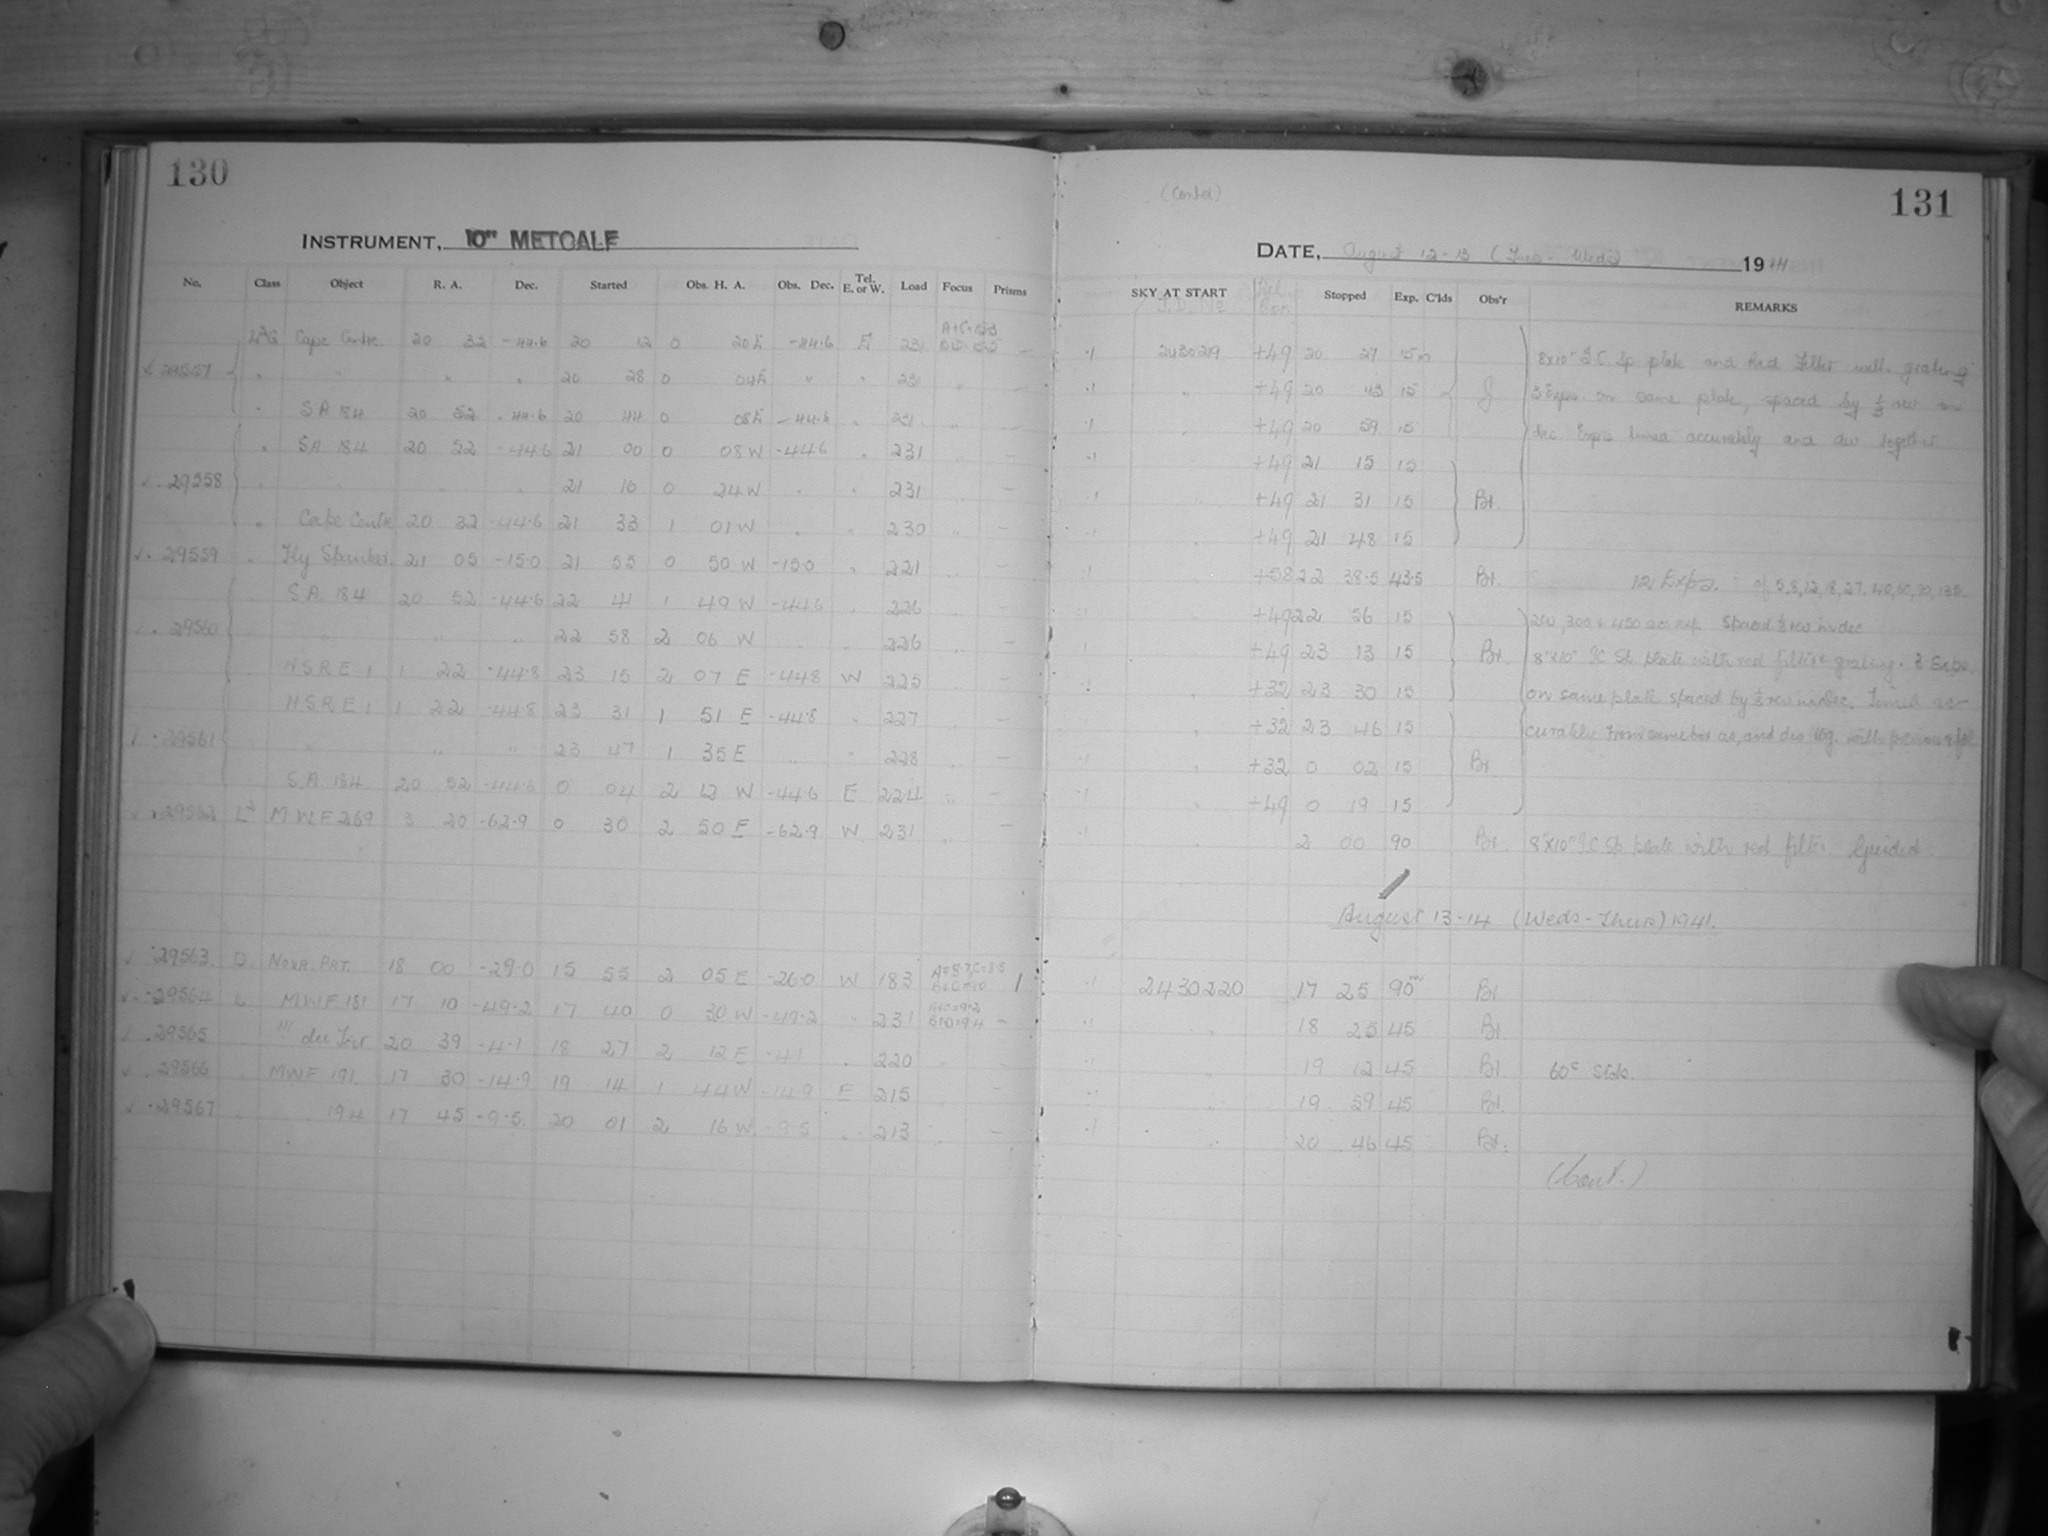 130
INSTRUMENT, 10" METCALF
No. Class Object R. A. Dec. Started Obs. H. A. Obs. Dec. Tel. E. or W. Load Focus Prisms
L²G Cape Centre 20 32 -44.6 20 12 0 20 E -44.6 E 231 —
29557 " " " " 20 28 0 04 E " " 231 " —
" SA 184 20 52 -44.6 20 44 0 08 E -44.6 " 231 " —
" SA 184 20 52 -44.6 21 00 0 08 W -44.6 " 231 " —
29558 " " " " 21 16 0 24 W " " 231 " —
" Cape Centre 20 32 -44.6 21 33 1 01 W " " 230 " —
29559 " 21 05 -15.0 21 55 0 50 W -15.0 " 221 " —
SA 184 20 52 -44.6 22 41 1 49 W -44.6 " 226 " —
29560 " " " 22 58 2 06 W " " 226 " —
HSRE 1 1 22 -44.8 23 15 2 07 E -44.8 W 225 " —
HSRE 1 1 22 -44.8 23 31 1 51 E -44.8 " 227 " —
29561 " " " 23 47 1 35 E " " 228 " —
S.A. 184 20 52 -44.6 0 04 2 12 W -44.6 E 224 " —
29562 L² MWF 269 3 20 -62.9 0 30 2 50 E -62.9 W 231 " —
29563 D Nova Pat. 18 00 -29.0 15 55 2 05 E -26.0 W 183 1
29564 L MWF 181 17 10 -49.2 17 40 0 30 W -49.2 " 231 —
29565 du Toit 20 39 -4.1 18 27 2 12 E -4.1 " 220 " —
29566 " MWF 191 17 30 -14.9 19 14 1 44 W -14.9 E 215 " —
29567 " " 194 17 45 -9.5 20 01 2 16 W -9.5 " 213 " —
(Contd)
131
DATE, August 12-13 (Tues - Weds) 1941
SKY AT START Stopped Exp. C'lds Obs'r REMARKS
2430219 +49 20 27 15m 8x10" plate and Red Filter with grating
" +49 20 43 15 3 Exps. on same plate, spaced by
" +49 20 59 15 dec. Exps timed accurately and dev together
+49 21 15 15
" +49 21 31 15 Bt.
" +49 21 48 15
" +58 22 38.5 43.5 Bt. 12 Exps. = of 5,8,12,18,27,40,60,90,135
" +49 22 56 15 200, 300 & 450
" +49 23 13 15 Bt. 8"x10" plate with red filter & grating. 3 Exps.
" +32 23 30 15 on same plate spaced by Timed ac-
" +32 23 46 15 curately. From same box as, and dev tog. with
" +32 0 02 15 Bt.
" +49 0 19 15
" 2 00 90 Bt. 8"x10" plate with red filter. Guided.
August 13-14 (Weds - Thurs) 1941.
2430220 17 25 90m Bt.
" 18 25 45 Bt.
" 19 12 45 Bt.
" 19 59 45 Bt.
" 20 46 45 Bt.
(Cont.)